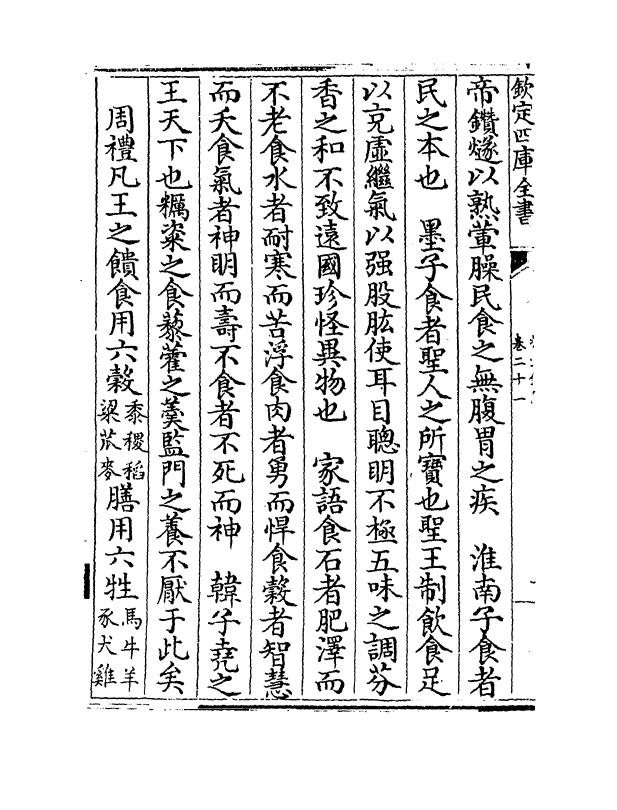 欽定四庫全書
卷二十一
帝鑽燧以熟葷臊民食之無腹胃之疾　淮南子食者
民之本也　墨子食者聖人之所寶也聖王制飲食足
以充虛繼氣以强股肱使耳目聰明不極五味之調芬
香之和不致遠國珍怪異物也　家語食石者肥澤而
不老食水者耐寒而苦浮食肉者勇而悍食榖者智慧
而夭食氣者神明而壽不食者不死而神　韓子堯之
王天下也糲粢之食藜藿之羮監門之養不厭于此矣
周禮凡王之饋食用六榖黍稷稻粱苽麥膳用六牲馬牛羊豕犬雞